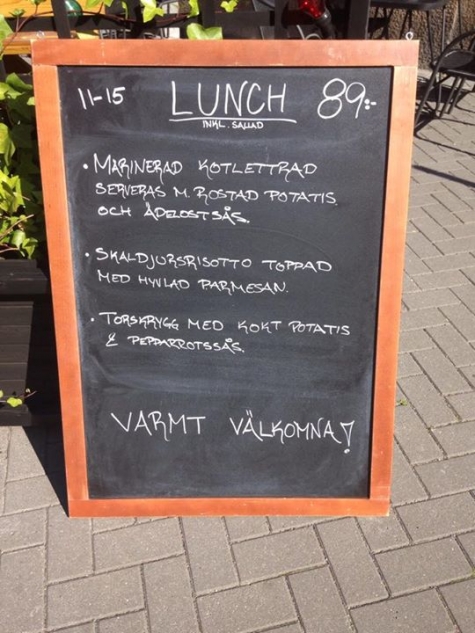 11-15 LUNCH 89:-
INKL. SALLAD
• MARINERAD KOTLETTRAD
SERVERAS M. ROSTAD POTATIS
OCH ÄDELOSTSÅS.
• SKALDJURSRISOTTO TOPPAD
MED HYVLAD PARMESAN.
• TORSKRYGG MED KOKT POTATIS
& PEPPARROTSSÅS.
VARMT VÄLKOMNA!